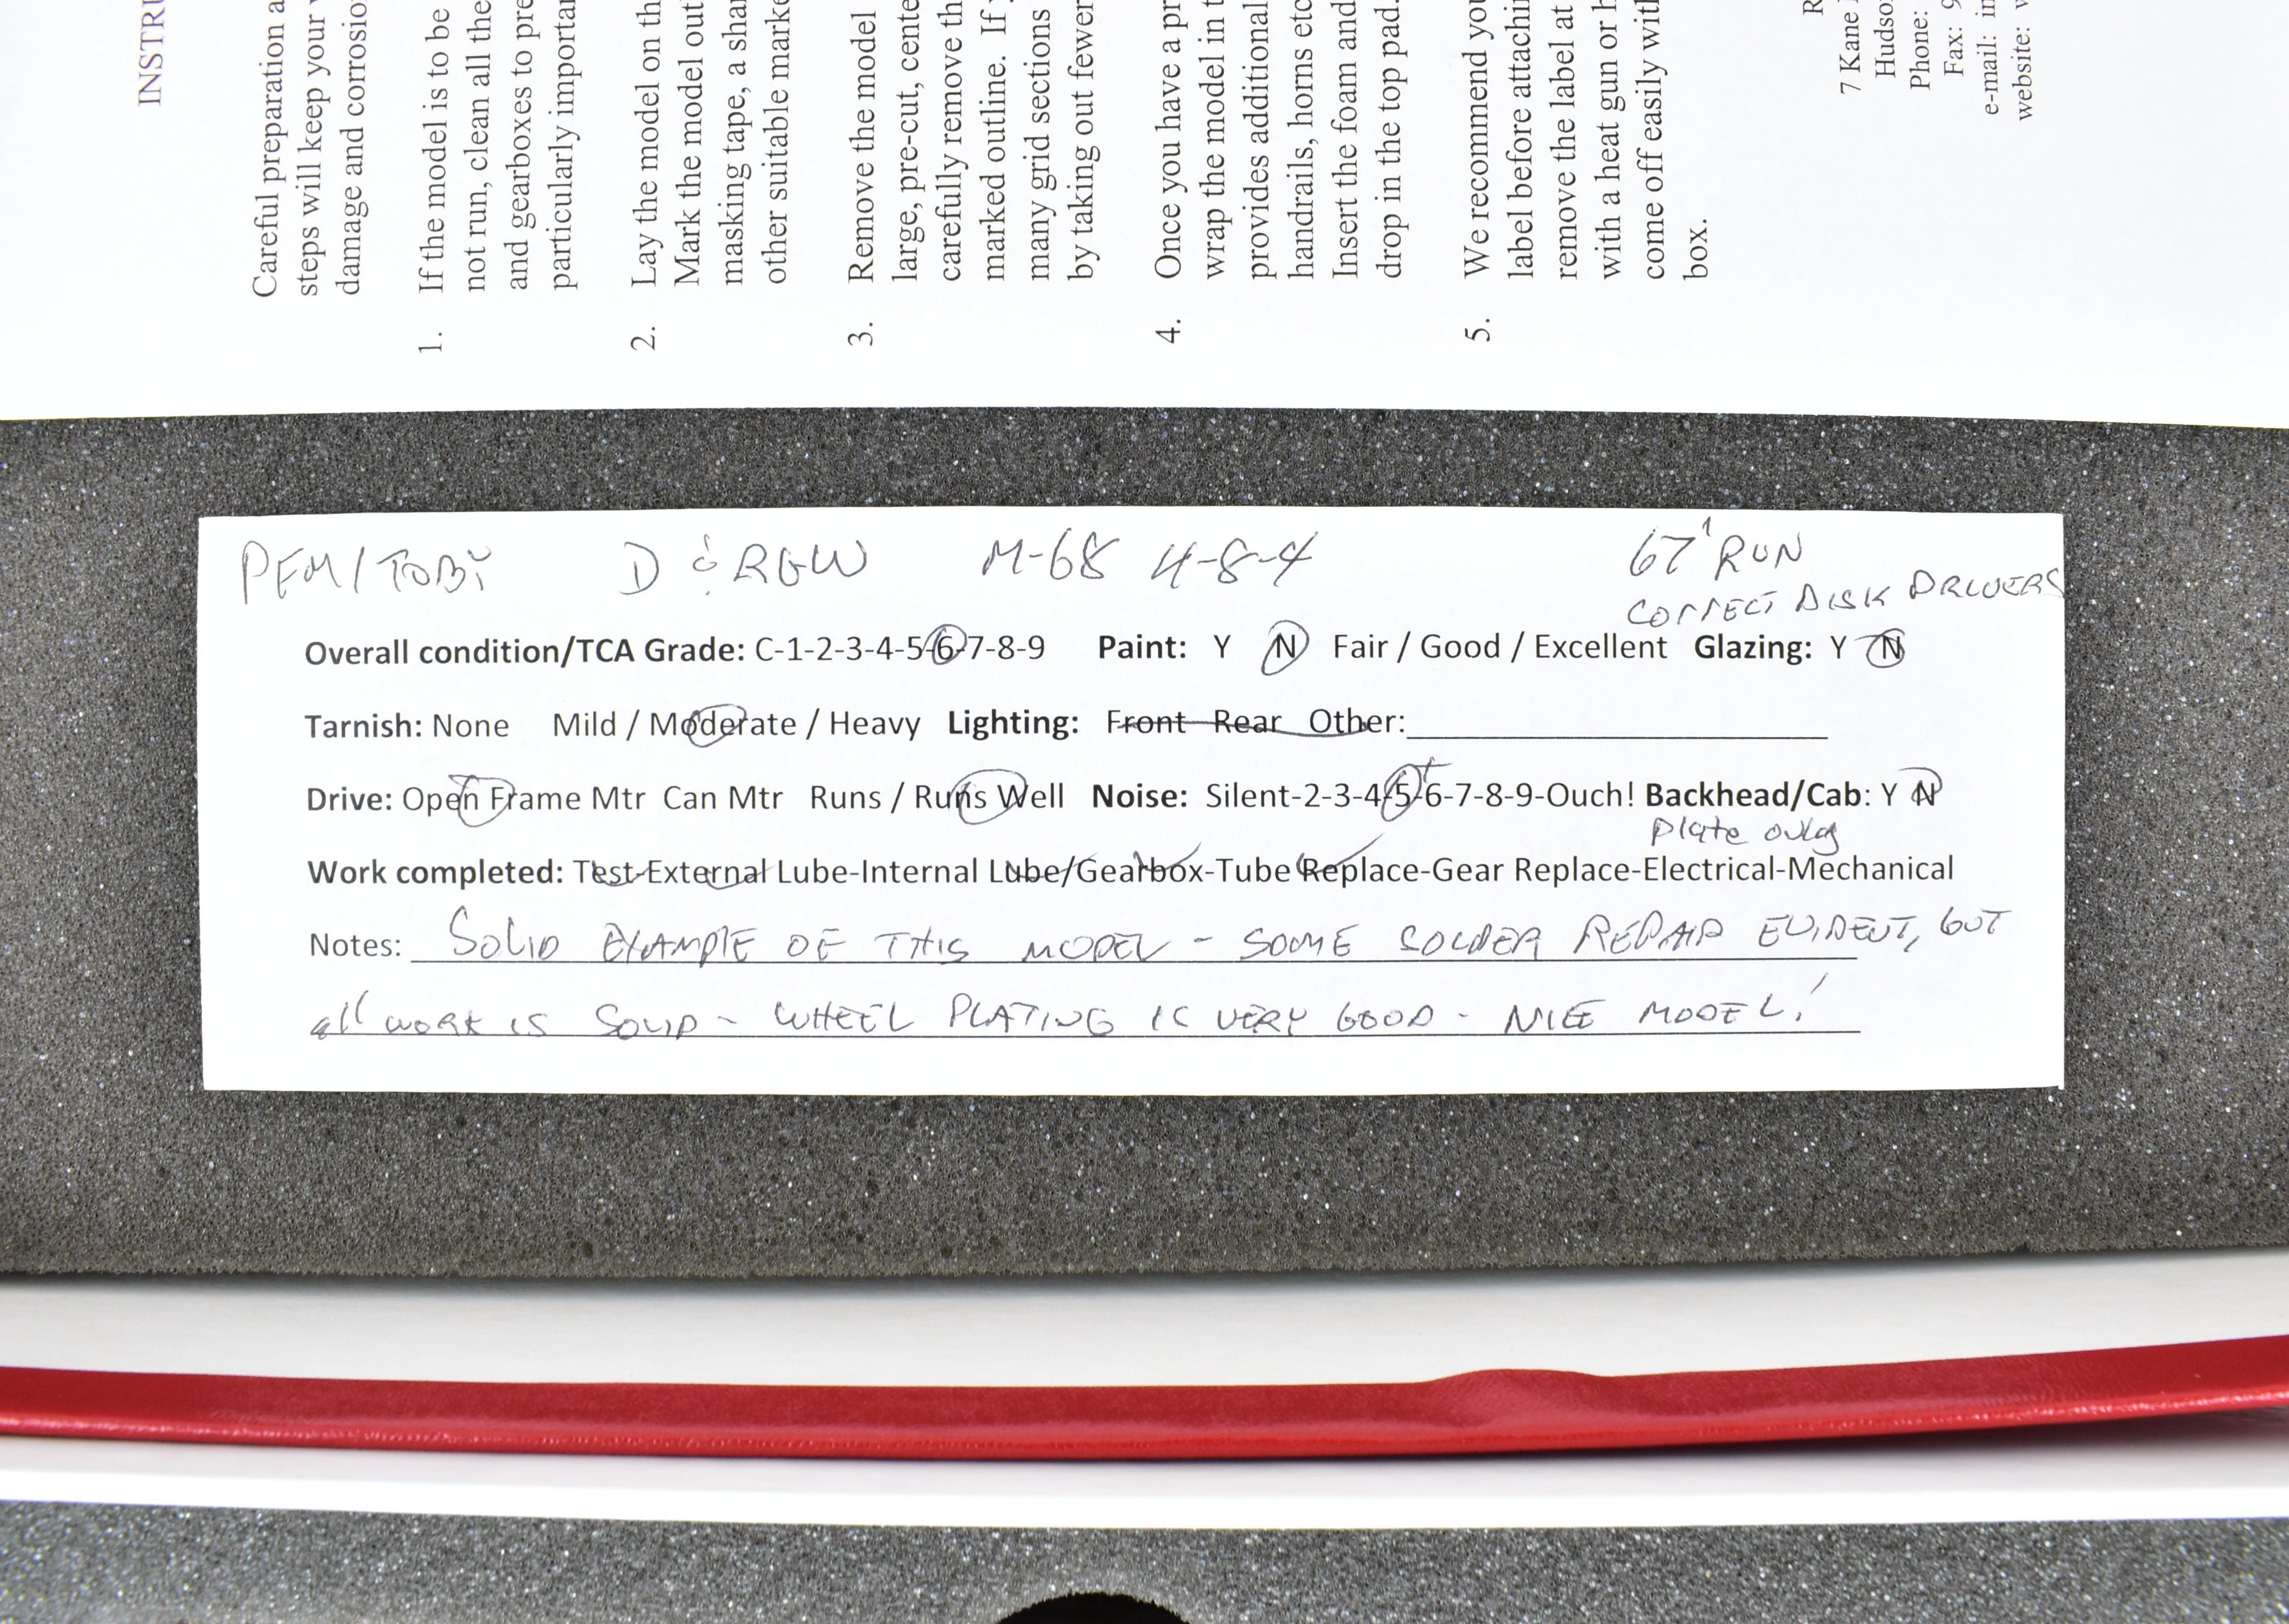 INSTRU
Careful preparation a
steps will keep your
damage and corrosio
1. If the model is to be
not run, clean all the
and gearboxes to pre
particularly importa
2. Lay the model on th
Mark the model out
masking tape, a sha
other suitable marke
3. Remove the model
large, pre-cut, cente
carefully remove th
marked outline. If
many grid sections
by taking out fewer
4. Once you have a pr
wrap the model in t
provides additional
handrails, horns etc
Insert the foam and
drop in the top pad.
5. We recommend you
label before attachi
remove the label at
with a heat gun or h
come off easily with
box.
R
7 Kane
Hudso
Phone:
Fax: 9
e-mail: in
website: w
PFM/TOBY D & RGW M-68 4-8-4 67' RUN
CORRECT DISK DRIVERS
Overall condition/TCA Grade: C-1-2-3-4-5-6-7-8-9 Paint: Y N Fair / Good / Excellent Glazing: Y N
Tarnish: None Mild / Moderate / Heavy Lighting: Front Rear Other:
Drive: Open Frame Mtr Can Mtr Runs / Runs Well Noise: Silent-2-3-4-5+-6-7-8-9-Ouch! Backhead/Cab: Y N
Plate only
Work completed: Test-External Lube-Internal Lube/Gearbox-Tube Replace-Gear Replace-Electrical-Mechanical
Notes: SOLID EXAMPLE OF THIS MODEL - SOME SOLDER REPAIR EVIDENT, BUT
all WORK IS SOLID - WHEEL PLATING IS VERY GOOD - NICE MODEL!